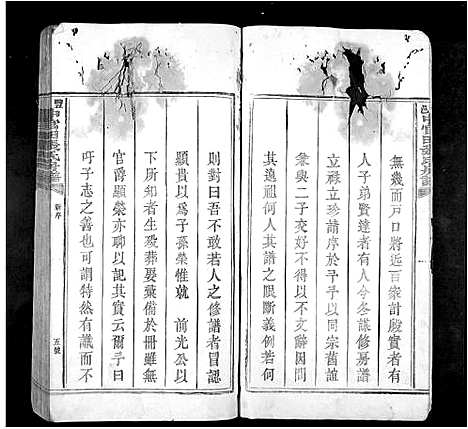 無幾而戸口將近百家計殷實者有
人子弟賢達者有人今冬謀修房譜
立祿立珍請序於予予以同宗舊誼
兼與二子交好不得以不文辭因問
其遠祖何人其譜之限斷義例若何
則對曰吾不敢若人之修譜者冒認
顯貴以爲子孫榮惟就 前光公以
下所知者生歿葬娶彙備於册雖無
官爵顯榮亦聊以記其實云爾予曰
吁子志之善也可謂特然有識而不
新序
五號